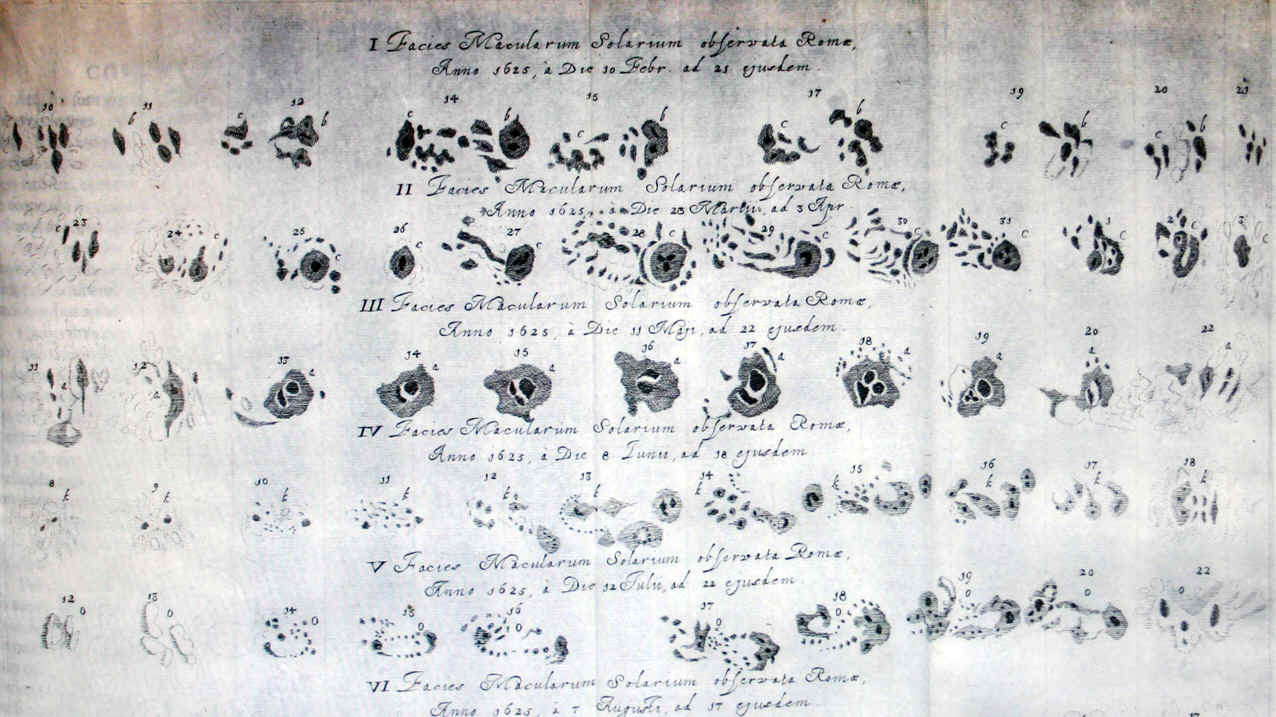 I Facies Macularum Solarium observata Romæ,
Anno 1625, à Die 10 Febr. ad 21 ejusdem.
10 11 12 14 15 17 19 20 21
b c b c b c b c b c b c b
II Facies Macularum Solarium observata Romæ,
Anno 1625, à Die 23 Martii, ad 3 Apr.
23 24 25 26 27 28 29 30 31 1 2 3
c c c c c c c c c c c c
III Facies Macularum Solarium observata Romæ,
Anno 1625, à Die 11 Maji, ad 22 ejusdem.
11 12 13 14 15 16 17 18 19 20 22
a a a a a a a a a a a
IV Facies Macularum Solarium observata Romæ,
Anno 1625, à Die 8 Iunii, ad 18 ejusdem
8 9 10 11 12 13 14 15 16 17 18
k k k k k k k k k k k
V Facies Macularum Solarium observata Romæ,
Anno 1625, à Die 12 Iulii, ad 22 ejusdem.
12 13 14 15 16 17 18 19 20 22
o o o o o o o o o o
VI Facies Macularum Solarium observata Romæ,
Anno 1625, à 7 Augusti, ad 17 ejusdem.